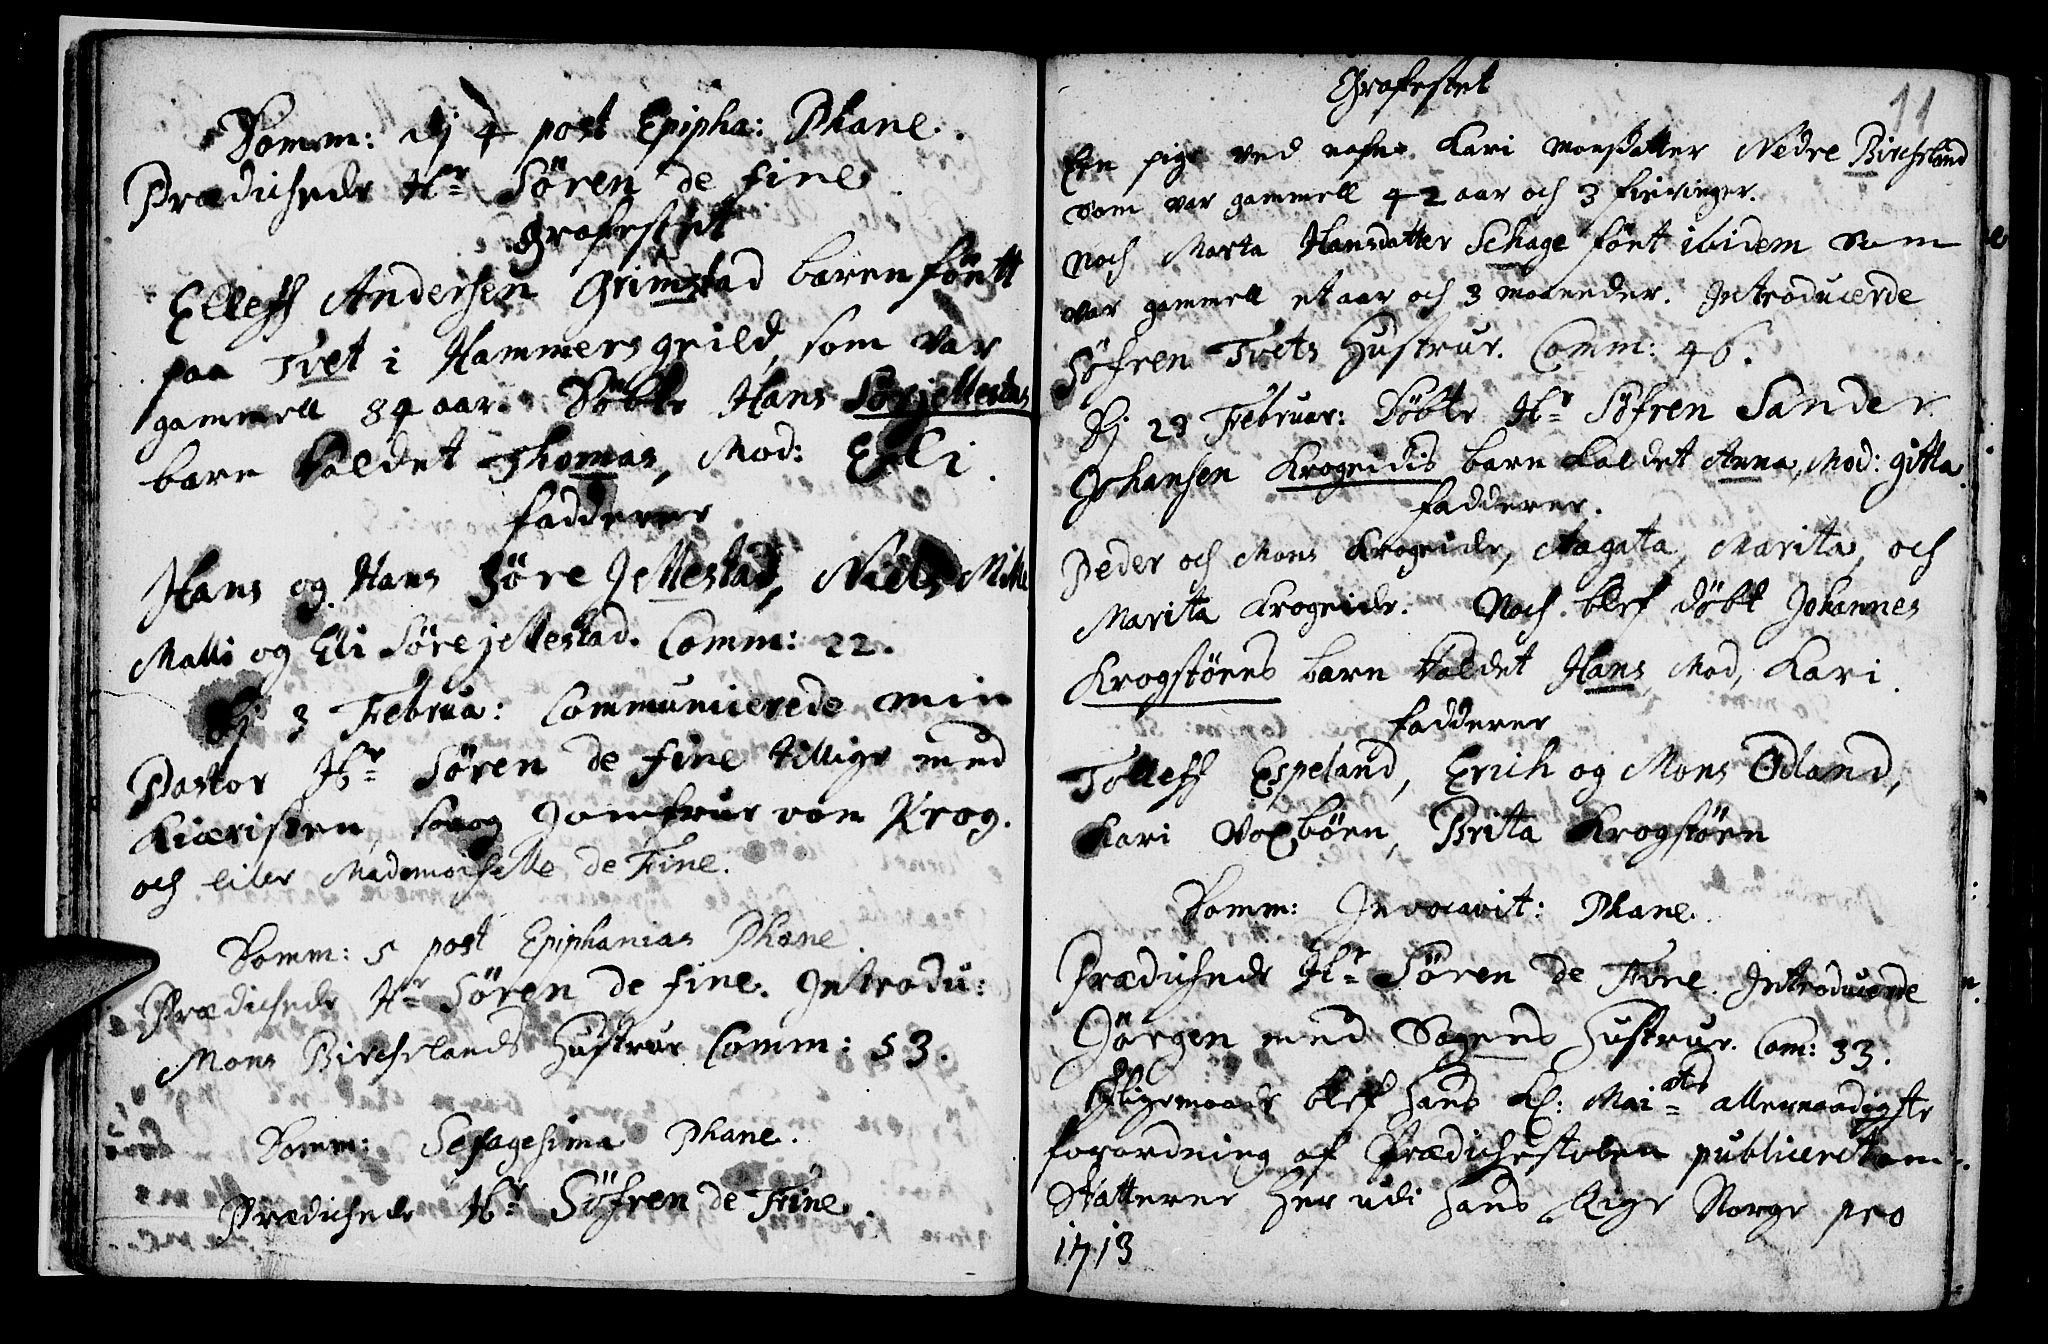 Domm: dj 4 post Epipha: Phane.
Prædichede Hr Søren de Fine.
Grafestet
Elleff Andersen Grimstad baren føett
paa Tvet i Hammersgrild, som var
gammell 84 aar. Døbte Hans Sørjellestas
barn kaldet Thomas, Mod: Elli.
fadderer
Hans og Hans Søre Jellestad, Niels Milk
Malli og Eli Sørejellestad. Comm: 22.
Dj 3 Februa: Communicerede min
Pastor Hr Søren de Fine tillige med
Kiæristen, saa og Jomfrue von Krog.
och liler Mademoiselle de Fine.
Domm: 5 post Epiphanias Phane.
Prædichede Hr Søren de Fine. Introdu:
Mons Bircherlands Hustrue Comm: 53.
Domm: Sexagesima Phane.
Prædichede Hr Søfren de Fine.
Grafestet 11
Een pige ved nafn Kari Monsdatter Nedre Bircherland
som var gammell 42 aar och 3 fieringer.
Noch Marta Hansdatter Schage fønt ibidem som
var gammell et aar och 3 maaneder. Introducerde
Søfren Tvets Hustrue. Comm: 46.
Dj 23 Februar: Døbte Hr Søfren Sander
Johansen Krogeidis barn kaldet Anna, Mod: gitla.
fadderer.
Peder och Mons Krogeide, Aagata, Marita, och
Marita Krogeide. Noch blef døbt Johannes
Krogstøens barn kaldet Hans, Mod, Kari.
fadderer
Tolleff Espeland, Erich og Mons Ødland,
Kari Voxbøen, Brita Krogstøen
Domm: Invocavit: Phane.
Prædichede Hr Søren de Fine. Introducerde
Jørgen med Søgens Hustrue. Com: 33.
Ifligemaade blef Hans Kl: Mai=ats allernaadigste
forordning af Prædichestolen publiceret om
Skatterne her udi Hans Rige Norge pro
1713